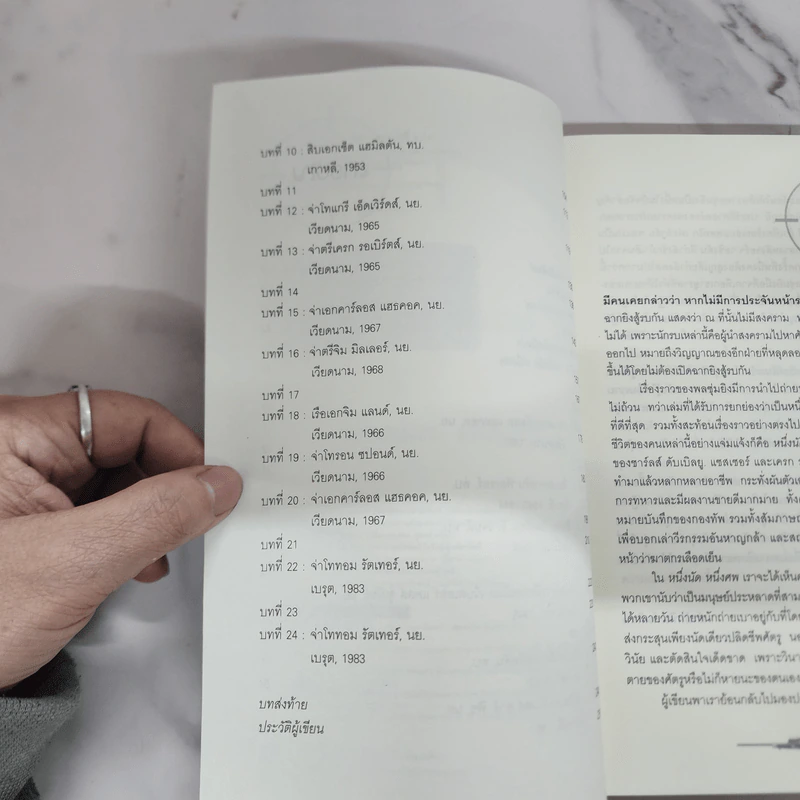 บทที่ 10 : สิบเอกเช็ต แฮมิลตัน, ทบ.
เกาหลี, 1953
บทที่ 11
บทที่ 12 : จ่าโทแกรี เอ็ดเวิร์ดส์, นย.
เวียดนาม, 1965
บทที่ 13 : จ่าตรีเครก รอเบิร์ตส์, นย.
เวียดนาม, 1965
บทที่ 14
บทที่ 15 : จ่าเอกคาร์ลอส แฮธคอค, นย.
เวียดนาม, 1967
บทที่ 16 : จ่าตรีจิม มิลเลอร์, นย.
เวียดนาม, 1968
บทที่ 17
บทที่ 18 : เรือเอกจิม แลนด์, นย.
เวียดนาม, 1966
บทที่ 19 : จ่าโทรอน ซปอนด์, นย.
เวียดนาม, 1966
บทที่ 20 : จ่าเอกคาร์ลอส แฮธคอค, นย.
เวียดนาม, 1967
บทที่ 21
บทที่ 22 : จ่าโททอม รัตเทอร์, นย.
เบรุต, 1983
บทที่ 23
บทที่ 24 : จ่าโททอม รัตเทอร์, นย.
เบรุต, 1983
บทส่งท้าย
ประวัติผู้เขียน
มีคนเคยกล่าวว่า หากไม่มีการประจันหน้า
ฉากยิงสู้รบกัน แสดงว่า ณ ที่นั้นไม่มีสงคราม
ไม่ได้ เพราะนักรบเหล่านี้คือผู้นำสงครามไปหา
ออกไป หมายถึงวิญญาณของอีกฝ่ายที่หลุดลอ
ขึ้นได้โดยไม่ต้องเปิดฉากยิงสู้รบกัน
เรื่องราวของพลซุ่มยิงมีการนำไปถ่าย
ไม่ถ้วน ทว่าเล่มที่ได้รับการยกย่องว่าเป็นหนึ่
ที่ดีที่สุด รวมทั้งสะท้อนเรื่องราวอย่างตรงไป
ชีวิตของคนเหล่านี้อย่างแจ่มแจ้งก็คือ หนึ่งนั
ของชาร์ลส์ ดับเบิลยู. แซสเซอร์ และเครก
ทำมาแล้วหลากหลายอาชีพ กระทั่งผันตัว
การทหารและมีผลงานขายดีมากมาย ทั้ง
หมายบันทึกของกองทัพ รวมทั้งสัมภาษณ์
เพื่อบอกเล่าวีรกรรมอันหาญกล้า และ
หน้าว่าฆาตกรเลือดเย็น
ใน หนึ่งนัด หนึ่งศพ เราจะได้เห็น
พวกเขานับว่าเป็นมนุษย์ประหลาดที่สาม
ได้หลายวัน ถ่ายหนักถ่ายเบาอยู่กับที่โดย
ส่งกระสุนเพียงนัดเดียวปลิดชีพศัตรู
วินัย และตัดสินใจเด็ดขาด เพราะวินา
ตายของศัตรูหรือไม่ก็หายนะของตนเอง
ผู้เขียนพาเราย้อนกลับไปมอง